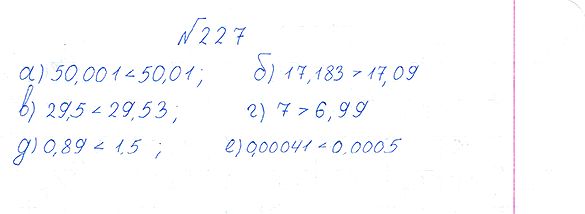 №227
а) 50,001 < 50,01; б) 17,183 > 17,09
в) 29,5 < 29,53; г) 7 > 6,99
д) 0,89 < 1,5 ; е) 0,00041 < 0,0005